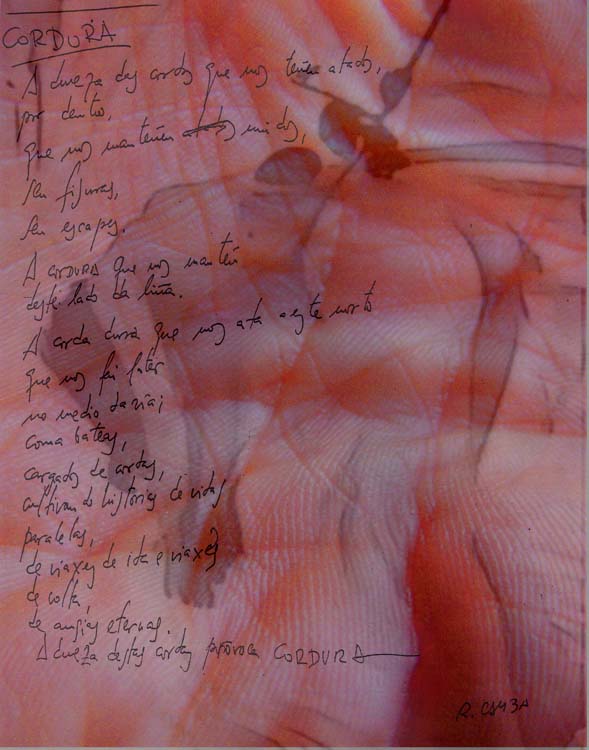 CORDURA
A dureza das cordas que nos teñen atados,
por dentro,
que nos manteñen atados unidos,
sen fisuras,
sen escapes.
A CORDURA que nos mantén
deste lado da liña.
A corda dura que nos ata a este
que nos fai
no medio da ría;
coma bateas,
cargados de cordas,
cultivando historias de vidas
paralelas,
de viaxes de ida e viaxes
de volta,
de ansias eternas.
A dureza destas cordas provoca CORDURA
R. CAMBA